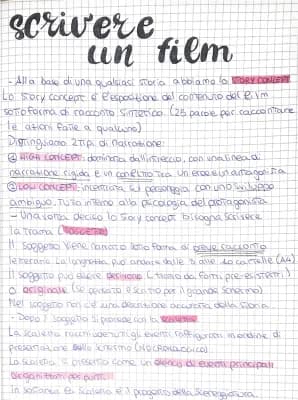 scrivere
un film
- Alla base di una qualsiasi storia abbiamo lo STORY CONCEPT
Lo story concept è l'esposizione del contenuto del film
sotto forma di racconto sintetico. (25 parole per raccontare
le azioni fate a qualcuno)
Distinguiamo 2 tipi di narrazione:
① HIGH CONCEPT: dominata dall'intreccio, con una linea di
narrazione rigida e un conflitto tra un eroe e un antagonista
② LOW CONCEPT: incentrata sul personaggio con uno sviluppo
ambiguo, tutto interno alla psicologia del protagonista
- Una volta deciso lo story concept bisogna scrivere
la trama (SOGGETTO)
Il soggetto viene narrato sotto forma di breve racconto
letterario. La lunghezza può andare dalle 3 alle cartelle (A4)
Il soggetto può essere derivato (tratto da fonti pre-esistenti)
o originale (se pensato e scritto per il grande schermo)
Nel soggetto non c'è una descrizione accurata della storia
- Dopo il soggetto si procede con la scaletta
La scaletta racchiude tutti gli eventi raffigurati in ordine di
presentazione sullo schermo (NO CRONOLOGICO)
La scaletta si presenta come un elenco di eventi principali
organizzati per punti.
In sostanza la scaletta è il progetto della sceneggiatura.